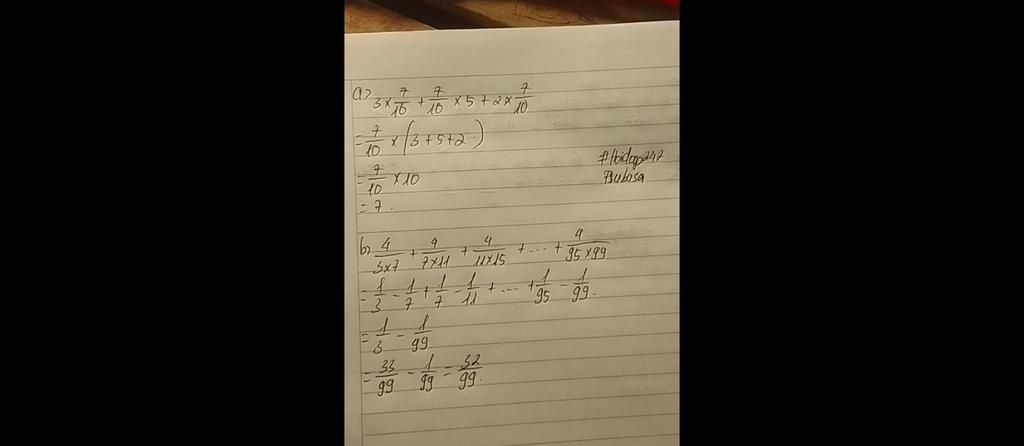 a> 3 × 7/10 + 7/10 × 5 + 2 × 7/10
= 7/10 × (3 + 5 + 2)
= 7/10 × 10
= 7.
#Hoidap247
b> 4/3×7 + 4/7×11 + 4/11×15 + ... + 4/95×99
= 1/3 - 1/7 + 1/7 - 1/11 + ... + 1/95 - 1/99.
= 1/3 - 1/99
= 33/99 - 1/99 = 32/99.